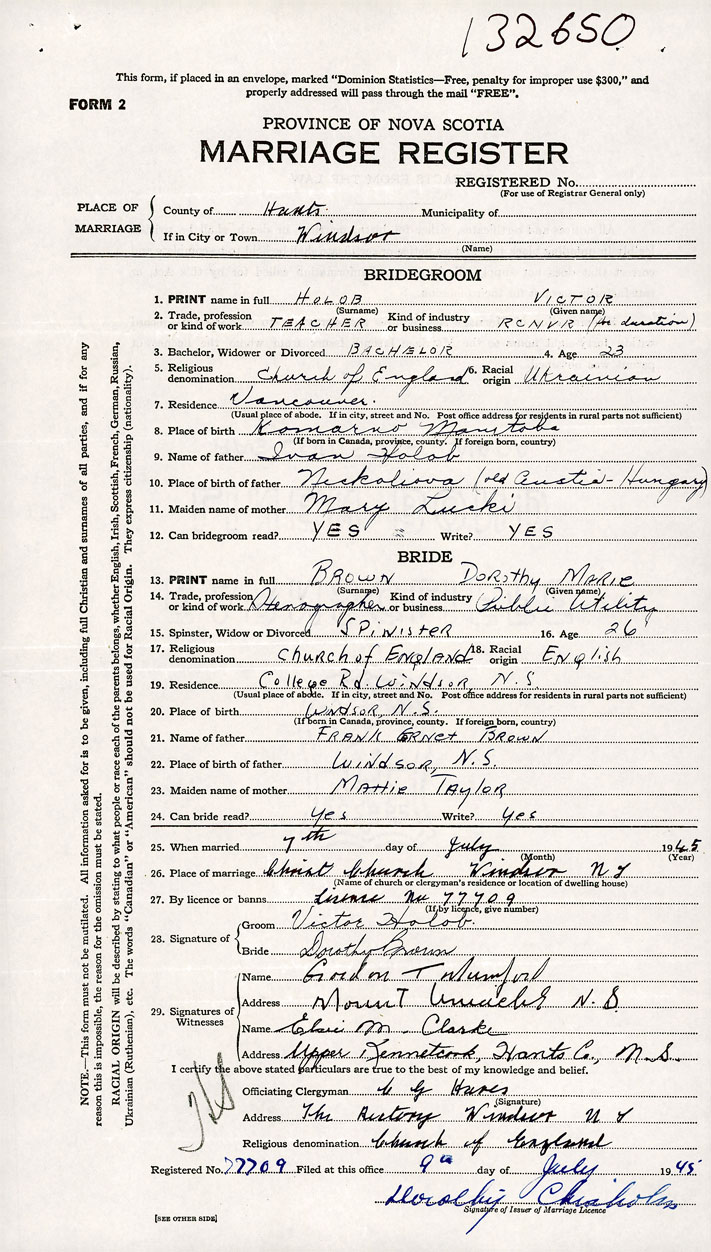 132650
This form, if placed in an envelope, marked "Dominion Statistics—Free, penalty for improper use $300," and
properly addressed will pass through the mail "FREE".
FORM 2
PROVINCE OF NOVA SCOTIA
MARRIAGE REGISTER
REGISTERED No.
(For use of Registrar General only)
PLACE OF MARRIAGE
County of Hants Municipality of
If in City or Town Windsor
(Name)
BRIDEGROOM
1. PRINT name in full HOLOB VICTOR
(Surname) (Given name)
2. Trade, profession or kind of work TEACHER Kind of industry or business RCNVR (for duration)
3. Bachelor, Widower or Divorced BACHELOR 4. Age 23
5. Religious denomination Church of England 6. Racial origin Ukrainian
7. Residence Vancouver.
(Usual place of abode. If in city, street and No. Post office address for residents in rural parts not sufficient)
8. Place of birth Komarno Manitoba
(If born in Canada, province, county. If foreign born, country)
9. Name of father Ivan Holob
10. Place of birth of father (old Austia-Hungary)
11. Maiden name of mother Mary Lucki
12. Can bridegroom read? YES Write? YES
BRIDE
13. PRINT name in full BROWN DOROTHY MARIE
(Surname) (Given name)
14. Trade, profession or kind of work Stenographer Kind of industry or business Public Utility
15. Spinster, Widow or Divorced SPINISTER 16. Age 26
17. Religious denomination Church of ENGLAND 18. Racial origin ENglish
19. Residence College Rd. WINDSOR, N.S.
(Usual place of abode. If in city, street and No. Post office address for residents in rural parts not sufficient)
20. Place of birth WINDSOR, N.S.
(If born in Canada, province, county. If foreign born, country)
21. Name of father FRANK ERNET BROWN
22. Place of birth of father WINDSOR, N.S.
23. Maiden name of mother MATTIE TAYLOR
24. Can bride read? Yes Write? Yes
25. When married 7th day of July 1945
(Month) (Year)
26. Place of marriage Christ Church Windsor N S
(Name of church or clergyman's residence or location of dwelling house)
27. By licence or banns License No 77709
(If by licence, give number)
28. Signature of
Groom Victor Holob.
Bride Dorothy Brown
29. Signatures of Witnesses
Name Gordon T Mumford
Address Mount Uniacke N.S
Name Elsie M. Clarke
Address Upper Kennetcook, Hants Co., N.S.
I certify the above stated particulars are true to the best of my knowledge and belief.
Officiating Clergyman
(Signature)
Address The Rectory Windsor N S
Religious denomination Church of England
Registered No. 77709 Filed at this office 9th day of July 1945
Dorothy Chisholm
Signature of Issuer of Marriage Licence
[SEE OTHER SIDE]
NOTE.—This form must not be mutilated. All information asked for is to be given, including full Christian and surnames of all parties, and if for any
reason this is impossible, the reason for the omission must be stated.
RACIAL ORIGIN will be described by stating to what people or race each of the parents belongs, whether English, Irish, Scottish, French, German, Russian,
Ukrainian (Ruthenian), etc. The words "Canadian" or "American" should not be used for Racial Origin. They express citizenship (nationality).